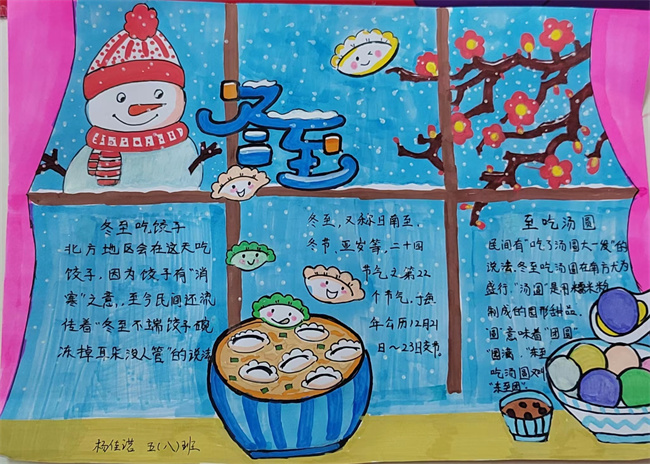 冬至
冬至吃饺子
北方地区会在这天吃
饺子，因为饺子有"消
寒"之意，至今民间还流
传着"冬至不端饺子碗
冻掉耳朵没人管"的说法
冬至，又称日南至、
冬节、亚岁等，二十四
节气之第22
个节气，于每
年公历12月21
日～23日交节。
至吃汤圆
民间有"吃了汤圆大一岁"的
说法。冬至吃汤圆在南方尤为
盛行。"汤圆"是用糯米粉
制成的圆形甜品，
"圆"意味着"团圆"
"圆满"，"冬至
吃汤圆又叫
"冬至团"
五(八)班